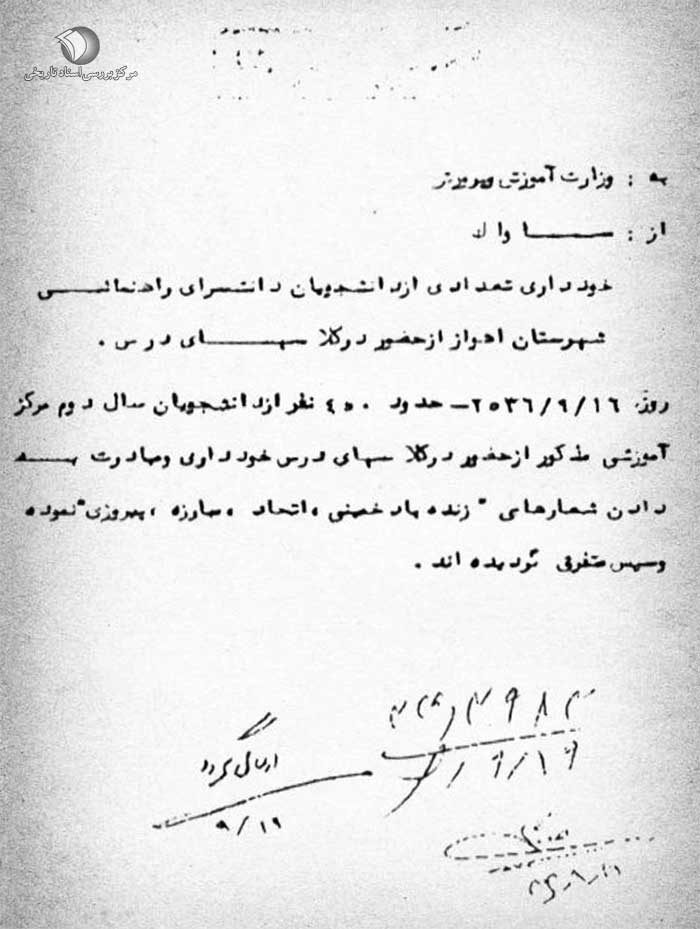 مرکز بررسی اسناد تاریخی
به : وزارت آموزش وپرورش
از : ســـاواک
خودداری تعدادی ازدانشجویان دانشسرای راهنمائـــی
شهرستان اهواز ازحضور درکلاسهـــای درس .
روز ۲۵۳۶/۹/۱۶ – حدود ۴۵۰ نفر ازدانشجویان سال دوم مرکز
آموزشی مذکور ازحضور درکلاسهای درس خودداری ومبادرت بـــه
دادن شعارهای " زنده باد خمینی ، اتحاد ، مبارزه ، پیروزی " نموده
وسپس متفرق گردیده اند .
ارسال گردد
۹/۱۹